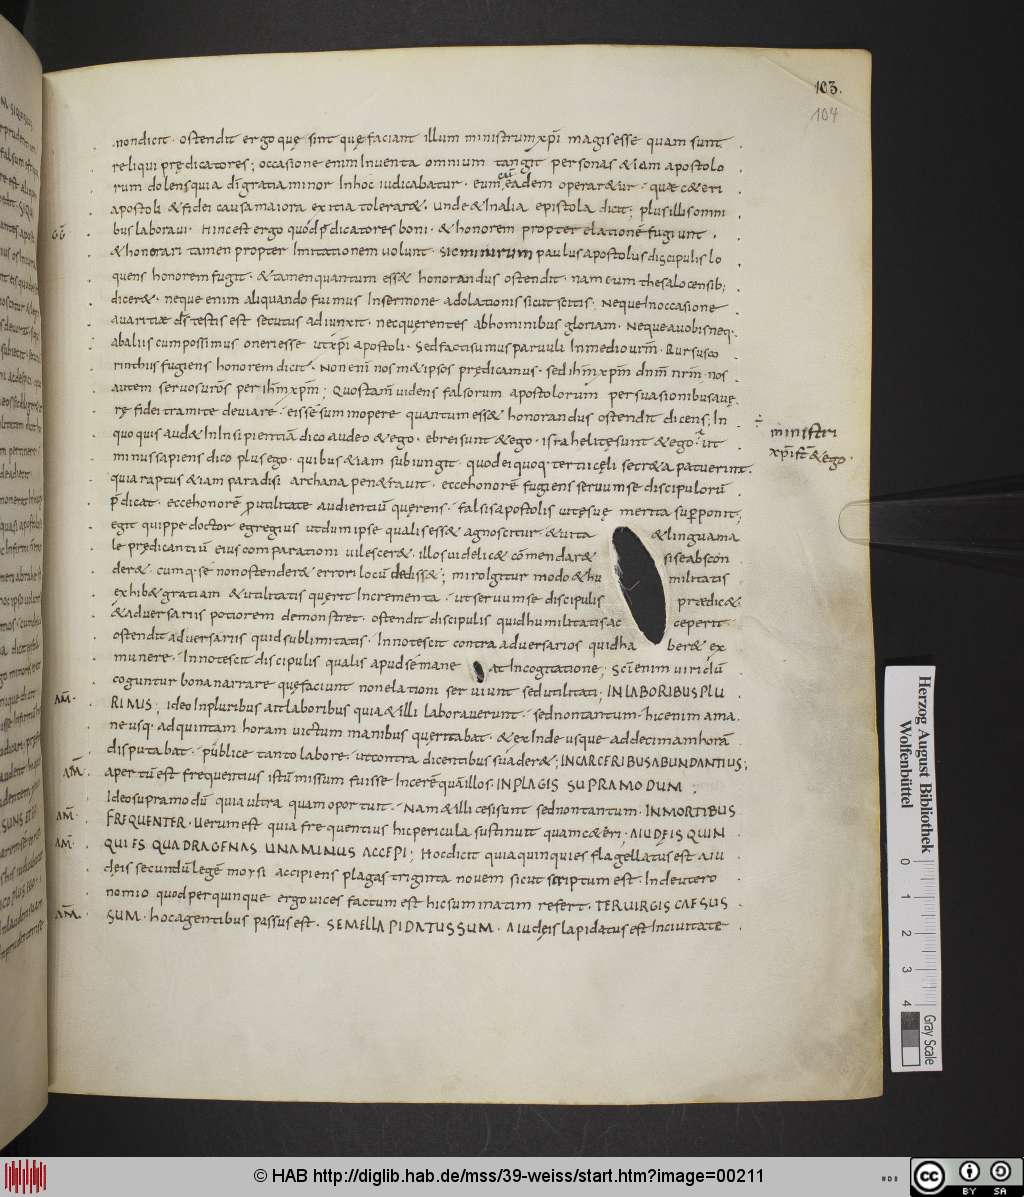 103.
104
non dicit · ostendit ergo quę sint quę faciant illum ministrum xp̄i magis esse quam sunt
reliqui prędicatores ; occasione enim Inuenta omnium tangit personas & iam apostolo
rum dolens quia dī gratia minor In hoc iudicabatur · cum eadem operar&ur · quae c&eri
apostoli & fidei causa maiora exitia tolerar& · unde & In alia epistola dicit ; plus illis omni
GG bus laboraui · Hinc est ergo quod p̄dicatores boni · & honorem propter elationē fugiunt ·
& honorari tamen propter Imitationem uolunt · sic nimirum paulus apostolus discipulis lo
quens honorem fugit · & tamen quantum ess& honorandus ostendit · nam cum thesalocensib;
dicer& · neque enim aliquando fuimus In sermone adolationis sicut scitis · Neque In occasione
auaritiæ dī testis est secutus adiunxit · nec querentes ab hominibus gloriam · Neque a uobis neq·
ab aliis cum possimus oneri esse ut xp̄i apostoli · Sed facti sumus paruuli In medio urm̄ · Rursus co
rinthus fugiens honorem dicit · Non enī nos m&ipsos prędicamus · sed ihm̄ xp̄m dnm̄ nrm̄ · nos
autem seruos urōs per ihm̄ xp̄m ; Quos tam̄ uidens falsorum apostolorum persuasionibus a uę
rę fidei tramite deuiare · eis sē summopere quantum ess& honorandus ostendit dicens ; In
quo quis aud& In Insipientia dico audeo & ego · ebrei sunt & ego · israhelitę sunt & ego · ut
÷ ministri
xp̄i st̄ & ego ·
minus sapiens dico plus ego · quibus & iam subiungit · quod ei quoq· tertii cęli secr&a patuerint ·
quia raptus & iam paradisi archana pen&rauit · ecce honorē fugiens seruum se discipulorū
p̄dicat · ecce honorē p̄ utilitate audientiū quęrens · falsis apostolis uitę suę merita sup̄ponit ;
egit quippe doctor egregius ut dum ipse qualis ess& agnoscitur · & uita & lingua ma
le prędicantiū eius comparationi uilescer& · illos uidelic& cōmendar& si se abscon
der& · cumq· sē non ostender& errori locū dediss& ; miro Igitur modo & hu militatis
exhib& gratiam & utilitatis querit Incrementa · ut seruum se discipulis prædic&
& aduersariis potiorem demonstret · ostendit discipulis quid humilitatis ac ceperit
ostendit aduersariis quid sublimitatis · Innotescit contra aduersarios quid ha ber& ex
munere · Innotescit discipulis qualis apud sē mane at In cogitatione ; Sc̄i enim uiri dū
coguntur bona narrare quę faciunt non elationi seruiunt sed utilitati ; IN LABORIBUS PLU
AM̄· RIMIS ; ideo In pluribus ait laboribus quia & illi laborauerunt · sed non tantum · hic enim a ma
ne usq· ad quintam horam uictum manibus queritabat · & exinde usque ad decimam horā
disputabat · publice tanto labore · ut contra dicentibus suader& ; IN CARCERIBUS ABUNDANTIUS ;
AM̄· apertū est frequentius istū missum fuisse In cercrē quā illos IN PLAGIS SUPRA MODUM ·
Ideo supra modū quia ultra quam oportuit · Nam & illi cesi sunt sed non tantum · IN MORTIBUS
AM̄· FREQUENTER · Uerum est quia frequentius hic pericula sustinuit quam c&eri · A IUDEIS QUIN
AM̄· QUIES QUADRAGENAS UNA MINUS ACCEPI ; Hoc dicit quia quinquies flagellatus est a iu
deis secundū legē moysi accipiens plagas triginta nouem sicut scriptum est · In deutero
nomio quod per quinque ergo uices factum est hic summatim refert · TER UIRGIS CAESUS
AM̄· SUM · hoc a gentibus passus est · SEMEL LAPIDATUS SUM · A iudęis lapidatus est In ciuitate
Herzog August Bibliothek
Wolfenbüttel
0 1 2 3 4
Gray Scale
© HAB http://diglib.hab.de/mss/39-weiss/start.htm?image=00211
cc BY SA